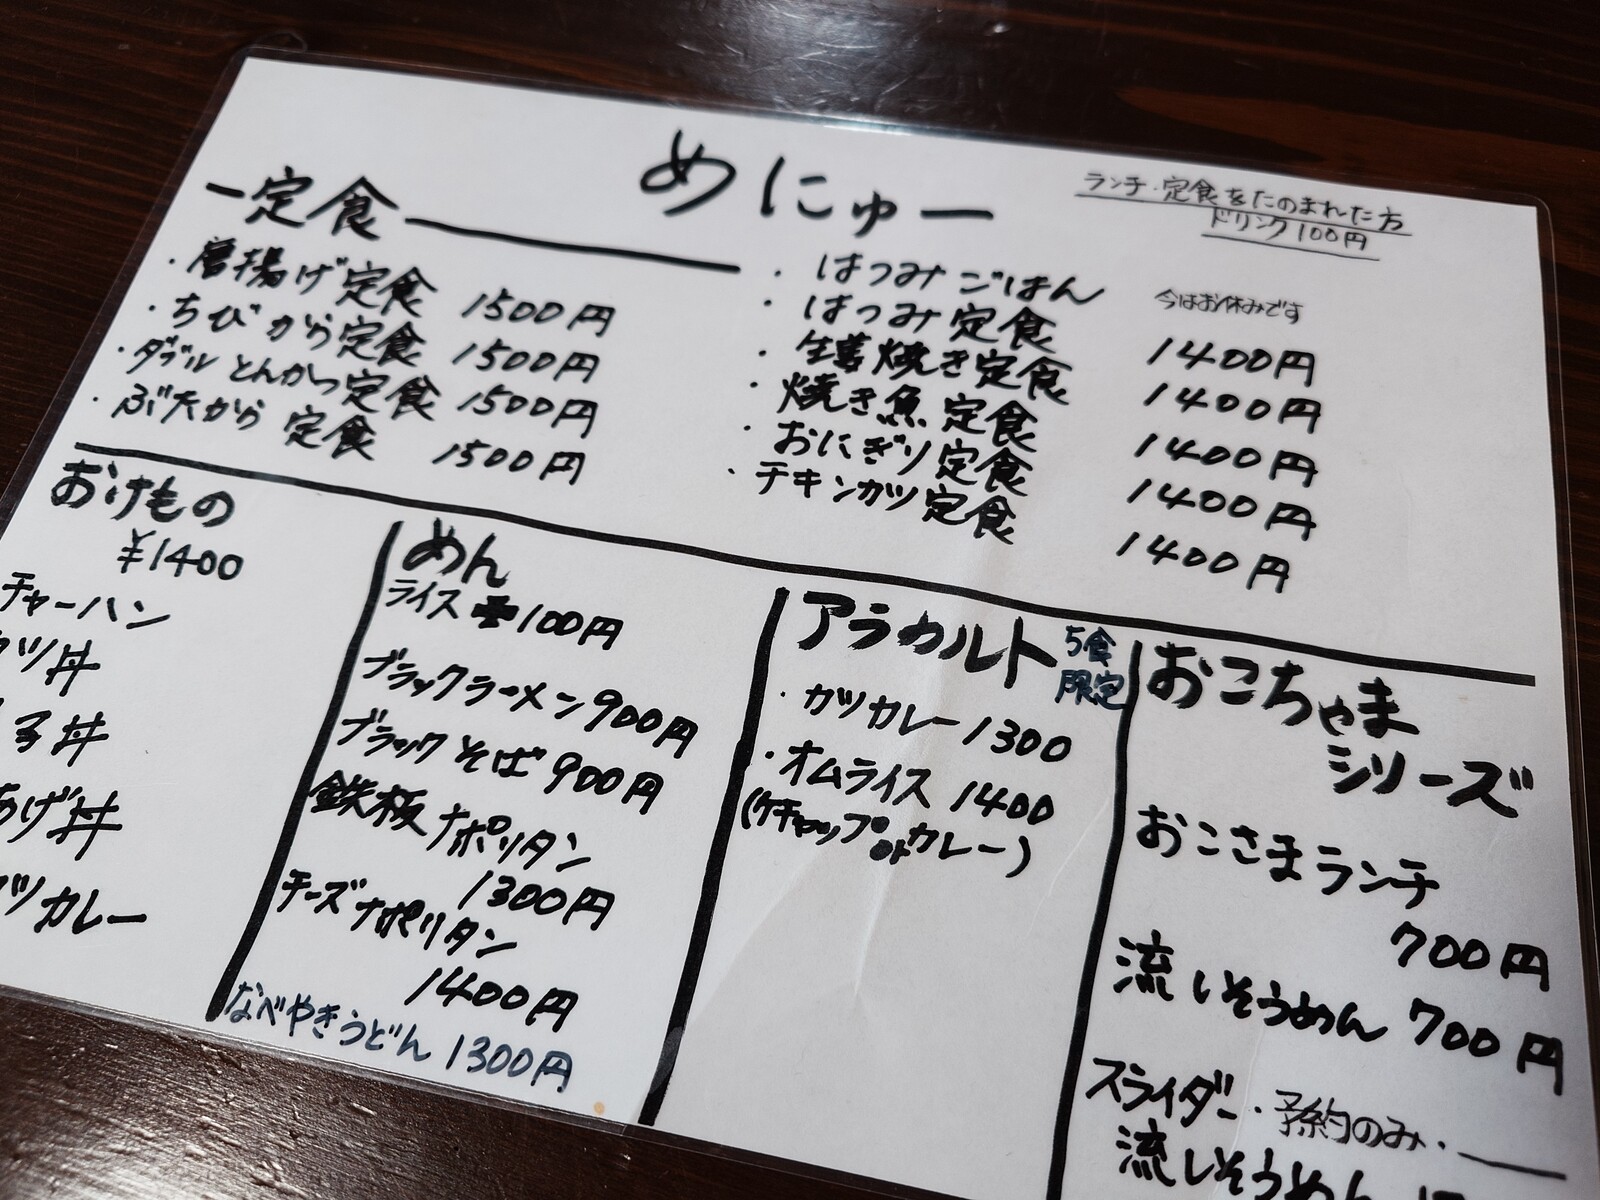 めにゅー
ランチ・定食をたのまれた方
ドリンク100円
定食
・唐揚げ定食 1500円
・ちびから定食 1500円
・ダブルとんかつ定食 1500円
・ぶたから定食 1500円
・はつみごはん 今はお休みです
・はつみ定食 1400円
・生姜焼き定食 1400円
・焼き魚定食 1400円
・おにぎり定食 1400円
・チキンカツ定食 1400円
おけもの
¥1400
チャーハン
カツ丼
子丼
あげ丼
カツカレー
めん
ライス+100円
ブラックラーメン900円
ブラックそば900円
鉄板ナポリタン
1300円
チーズナポリタン
1400円
なべやきうどん 1300円
アラカルト
5食
限定
・カツカレー 1300
・オムライス 1400
(ケチャップorカレー)
おこちゃま
シリーズ
おこさまランチ
700円
流しそうめん 700円
スライダー・予約のみ・
流しそうめん